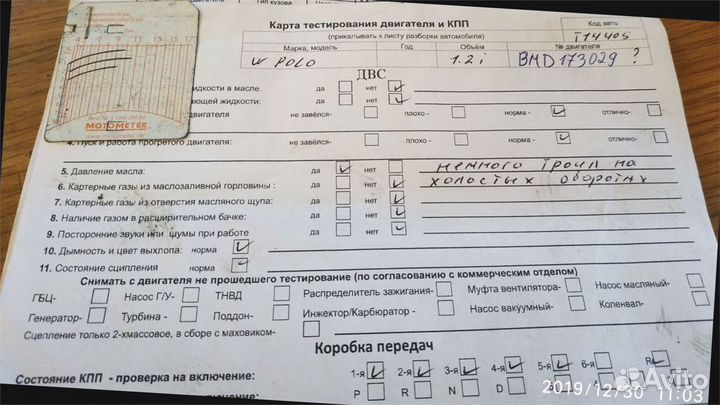 Тип кузова
Карта тестирования двигателя и КПП
(прикалывать к листу разборки автомобиля)
Код авто
T14405
Марка, модель Год Объём № двигателя
W POLO 1.2 i BMD 173029 ?
ДВС
жидкости в масле. да нет
ющей жидкости: да нет
двигателя не завёлся- плохо - норма - отлично-
4. Пуск и работа прогретого двигателя: не завелся- плохо - норма - отлично-
5. Давление масла: да нет немного троил на
6. Картерные газы из маслозаливной горловины : да нет холостых оборотах
7. Картерные газы из отверстия масляного щупа: да нет
8. Наличие газом в расширительном бачке: да нет
9. Посторонние звуки или шумы при работе да нет
10. Дымность и цвет выхлопа: норма
11. Состояние сцепления норма
Снимать с двигателя не прошедшего тестирование (по согласованию с коммерческим отделом)
ГБЦ- Насос Г/У- ТНВД Распределитель зажигания- Муфта вентилятора- Насос масляный-
Генератор- Турбина - Поддон- Инжектор/Карбюратор - Насос вакуумный- Коленвал-
Сцепление только 2-хмассовое, в сборе с маховиком-
Коробка передач
Состояние КПП - проверка на включение: 1-я 2-я 3-я 4-я 5-я 6-я R-
P R N D
7 9 11 13 15 17
MOTOMETER
2019/12/30 11:03
Avito